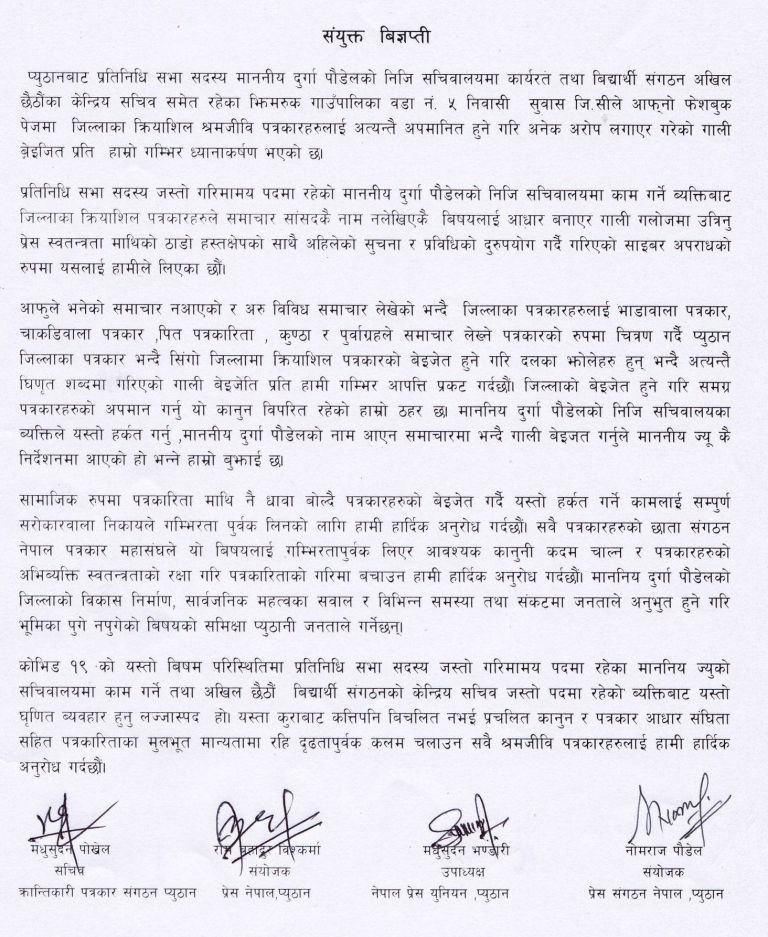 संयुक्त बिज्ञप्ती
प्युठानबाट प्रतिनिधि सभा सदस्य माननीय दुर्गा पौडेलको निजि सचिवालयमा कार्यरत तथा बिद्यार्थी संगठन अखिल
छैठौंका केन्द्रिय सचिव समेत रहेका झिमरुक गाउँपालिका वडा नं. ५ निवासी सुवास जि.सीले आफ्नो फेशबुक
पेजमा जिल्लाका क्रियाशिल श्रमजीवि पत्रकारहरुलाई अत्यन्तै अपमानित हुने गरि अनेक अरोप लगाएर गरेको गाली
बेइजित प्रति हाम्रो गम्भिर ध्यानाकर्षण भएको छ।
प्रतिनिधि सभा सदस्य जस्तो गरिमामय पदमा रहेको माननीय दुर्गा पौडेलको निजि सचिवालयमा काम गर्ने ब्यक्तिबाट
जिल्लाका क्रियाशिल पत्रकारहरुले समाचार सांसदकै नाम नलेखिएकै बिषयलाई आधार बनाएर गाली गलोजमा उत्रिनु
प्रेस स्वतन्त्रता माथिको ठाडो हस्तक्षेपको साथै अहिलेको सुचना र प्रविधिको दुरुपयोग गर्दै गरिएको साइबर अपराधको
रुपमा यसलाई हामीले लिएका छौं।
आफुले भनेको समाचार नआएको र अरु विविध समाचार लेखेको भन्दै जिल्लाका पत्रकारहरुलाई भाडावाला पत्रकार,
चाकडिवाला पत्रकार ,पित पत्रकारिता , कुण्ठा र पुर्वाग्रहले समाचार लेख्ने पत्रकारको रुपमा चित्रण गर्दै प्युठान
जिल्लाका पत्रकार भन्दै सिंगो जिल्लामा क्रियाशिल पत्रकारको बेइजेत हुने गरि दलका झोलेहरु हुन् भन्दै अत्यन्तै
घिणृत शब्दमा गरिएको गाली बेइजेति प्रति हामी गम्भिर आपत्ति प्रकट गर्दछौं। जिल्लाको बेइजेत हुने गरि समग्र
पत्रकारहरुको अपमान गर्नु यो कानुन विपरित रहेको हाम्रो ठहर छ। माननिय दुर्गा पौडेलको निजि सचिवालयका
ब्यक्तिले यस्तो हर्कत गर्नु ,माननीय दुर्गा पौडेलको नाम आएन समाचारमा भन्दै गाली बेइजत गर्नुले माननीय ज्यू कै
निर्देशनमा आएको हो भन्ने हाम्रो बुझाई छ।
सामाजिक रुपमा पत्रकारिता माथि नै धावा बोल्दै पत्रकारहरुको बेइजेत गर्दै यस्तो हर्कत गर्ने कामलाई सम्पुर्ण
सरोकारवाला निकायले गम्भिरता पुर्वक लिनको लागि हामी हार्दिक अनुरोध गर्दछौं। सवै पत्रकारहरुको छाता संगठन
नेपाल पत्रकार महासंघले यो बिषयलाई गम्भिरतापुर्वक लिएर आवश्यक कानुनी कदम चाल्न र पत्रकारहरुको
अभिब्यक्ति स्वतन्त्रताको रक्षा गरि पत्रकारिताको गरिमा बचाउन हामी हार्दिक अनुरोध गर्दछौं। माननिय दुर्गा पौडेलको
जिल्लाको विकास निर्माण, सार्वजनिक महत्वका सवाल र विभिन्न समस्या तथा संकटमा जनताले अनुभुत हुने गरि
भूमिका पुगे नपुगेको बिषयको समिक्षा प्युठानी जनताले गर्नेछन्।
कोभिड १९ को यस्तो बिषम परिस्थितिमा प्रतिनिधि सभा सदस्य जस्तो गरिमामय पदमा रहेका माननिय ज्युको
सचिवालयमा काम गर्ने तथा अखिल छैठौं बिद्यार्थी संगठनको केन्द्रिय सचिव जस्तो पदमा रहेको ब्यक्तिबाट यस्तो
घृणित ब्यवहार हुनु लज्जास्पद हो। यस्ता कुराबाट कत्तिपनि बिचलित नभई प्रचलित कानुन र पत्रकार आधार संघिता
सहित पत्रकारिताका मुलभूत मान्यतामा रहि दृढतापुर्वक कलम चलाउन सवै श्रमजीवि पत्रकारहरुलाई हामी हार्दिक
अनुरोध गर्दछौं।
मधुसुदन पोखेल बहादुर विश्वकर्मा मधुसुदन भण्डारी नोमराज पौडेल
सचिव संयोजक उपाध्यक्ष संयोजक
क्रान्तिकारी पत्रकार संगठन प्युठान प्रेस नेपाल,प्युठान नेपाल प्रेस युनियन ,प्युठान प्रेस संगठन नेपाल ,प्युठान